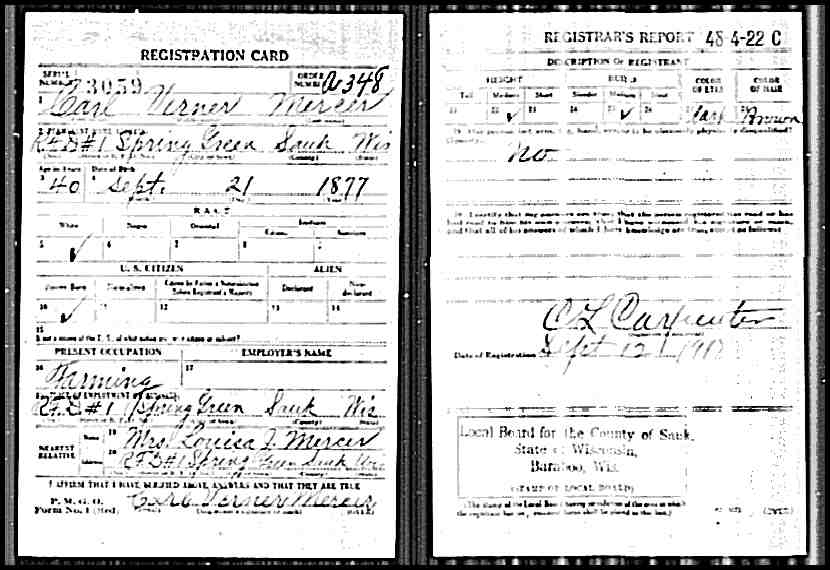 REGISTRATION CARD
SERIAL NUMBER 3059 ORDER NUMBER A 348
1 Carl Verner Mercer
2 PERMANENT HOME ADDRESS:
R.F.D#1 Spring Green Sauk Wis
Age in Years Date of Birth
40 Sept. 21 1877
RACE
White Negro Oriental Indian
Citizen Noncitizen
5 ✓ 6 7 8 9
U. S. CITIZEN ALIEN
Native Born Naturalized Citizen by Father's Naturalization Before Registrant's Majority Declarant Non-declarant
10 ✓ 11 12 13 14
15
If not a citizen of the U. S., of what nation are you a citizen or subject?
PRESENT OCCUPATION EMPLOYER'S NAME
16 Farming 17
18 PLACE OF EMPLOYMENT OR BUSINESS:
R.F.D#1 Spring Green Sauk Wis
NEAREST RELATIVE Name 19 Mrs. Louisa J. Mercer
Address 20 R.F.D#1 Spring Green Sauk Wis
I AFFIRM THAT I HAVE VERIFIED ABOVE ANSWERS AND THAT THEY ARE TRUE
P. M. G. O.
Form No. 1 (Red) Carl Verner Mercer
REGISTRAR'S REPORT 48 4-22 C
DESCRIPTION OF REGISTRANT
HEIGHT BUILD COLOR OF EYES COLOR OF HAIR
Tall Medium Short Slender Medium Stout
21 22 ✓ 23 24 25 ✓ 26 27 Dark 28 Brown
29 Has person lost arm, leg, hand, eye, or is he obviously physically disqualified?
(Specify.)
No
30 I certify that my answers are true; that the person registered has read or has
had read to him his own answers; that I have witnessed his signature or mark,
and that all of his answers of which I have knowledge are true, except as follows:
C L Carpenter
Date of Registration Sept 12 1918
Local Board for the County of Sauk,
State of Wisconsin,
Baraboo, Wis.
(STAMP OF LOCAL BOARD)
(The stamp of the Local Board having jurisdiction of the area in which
the registrant has his permanent home shall be placed in this box.)
(OVER)